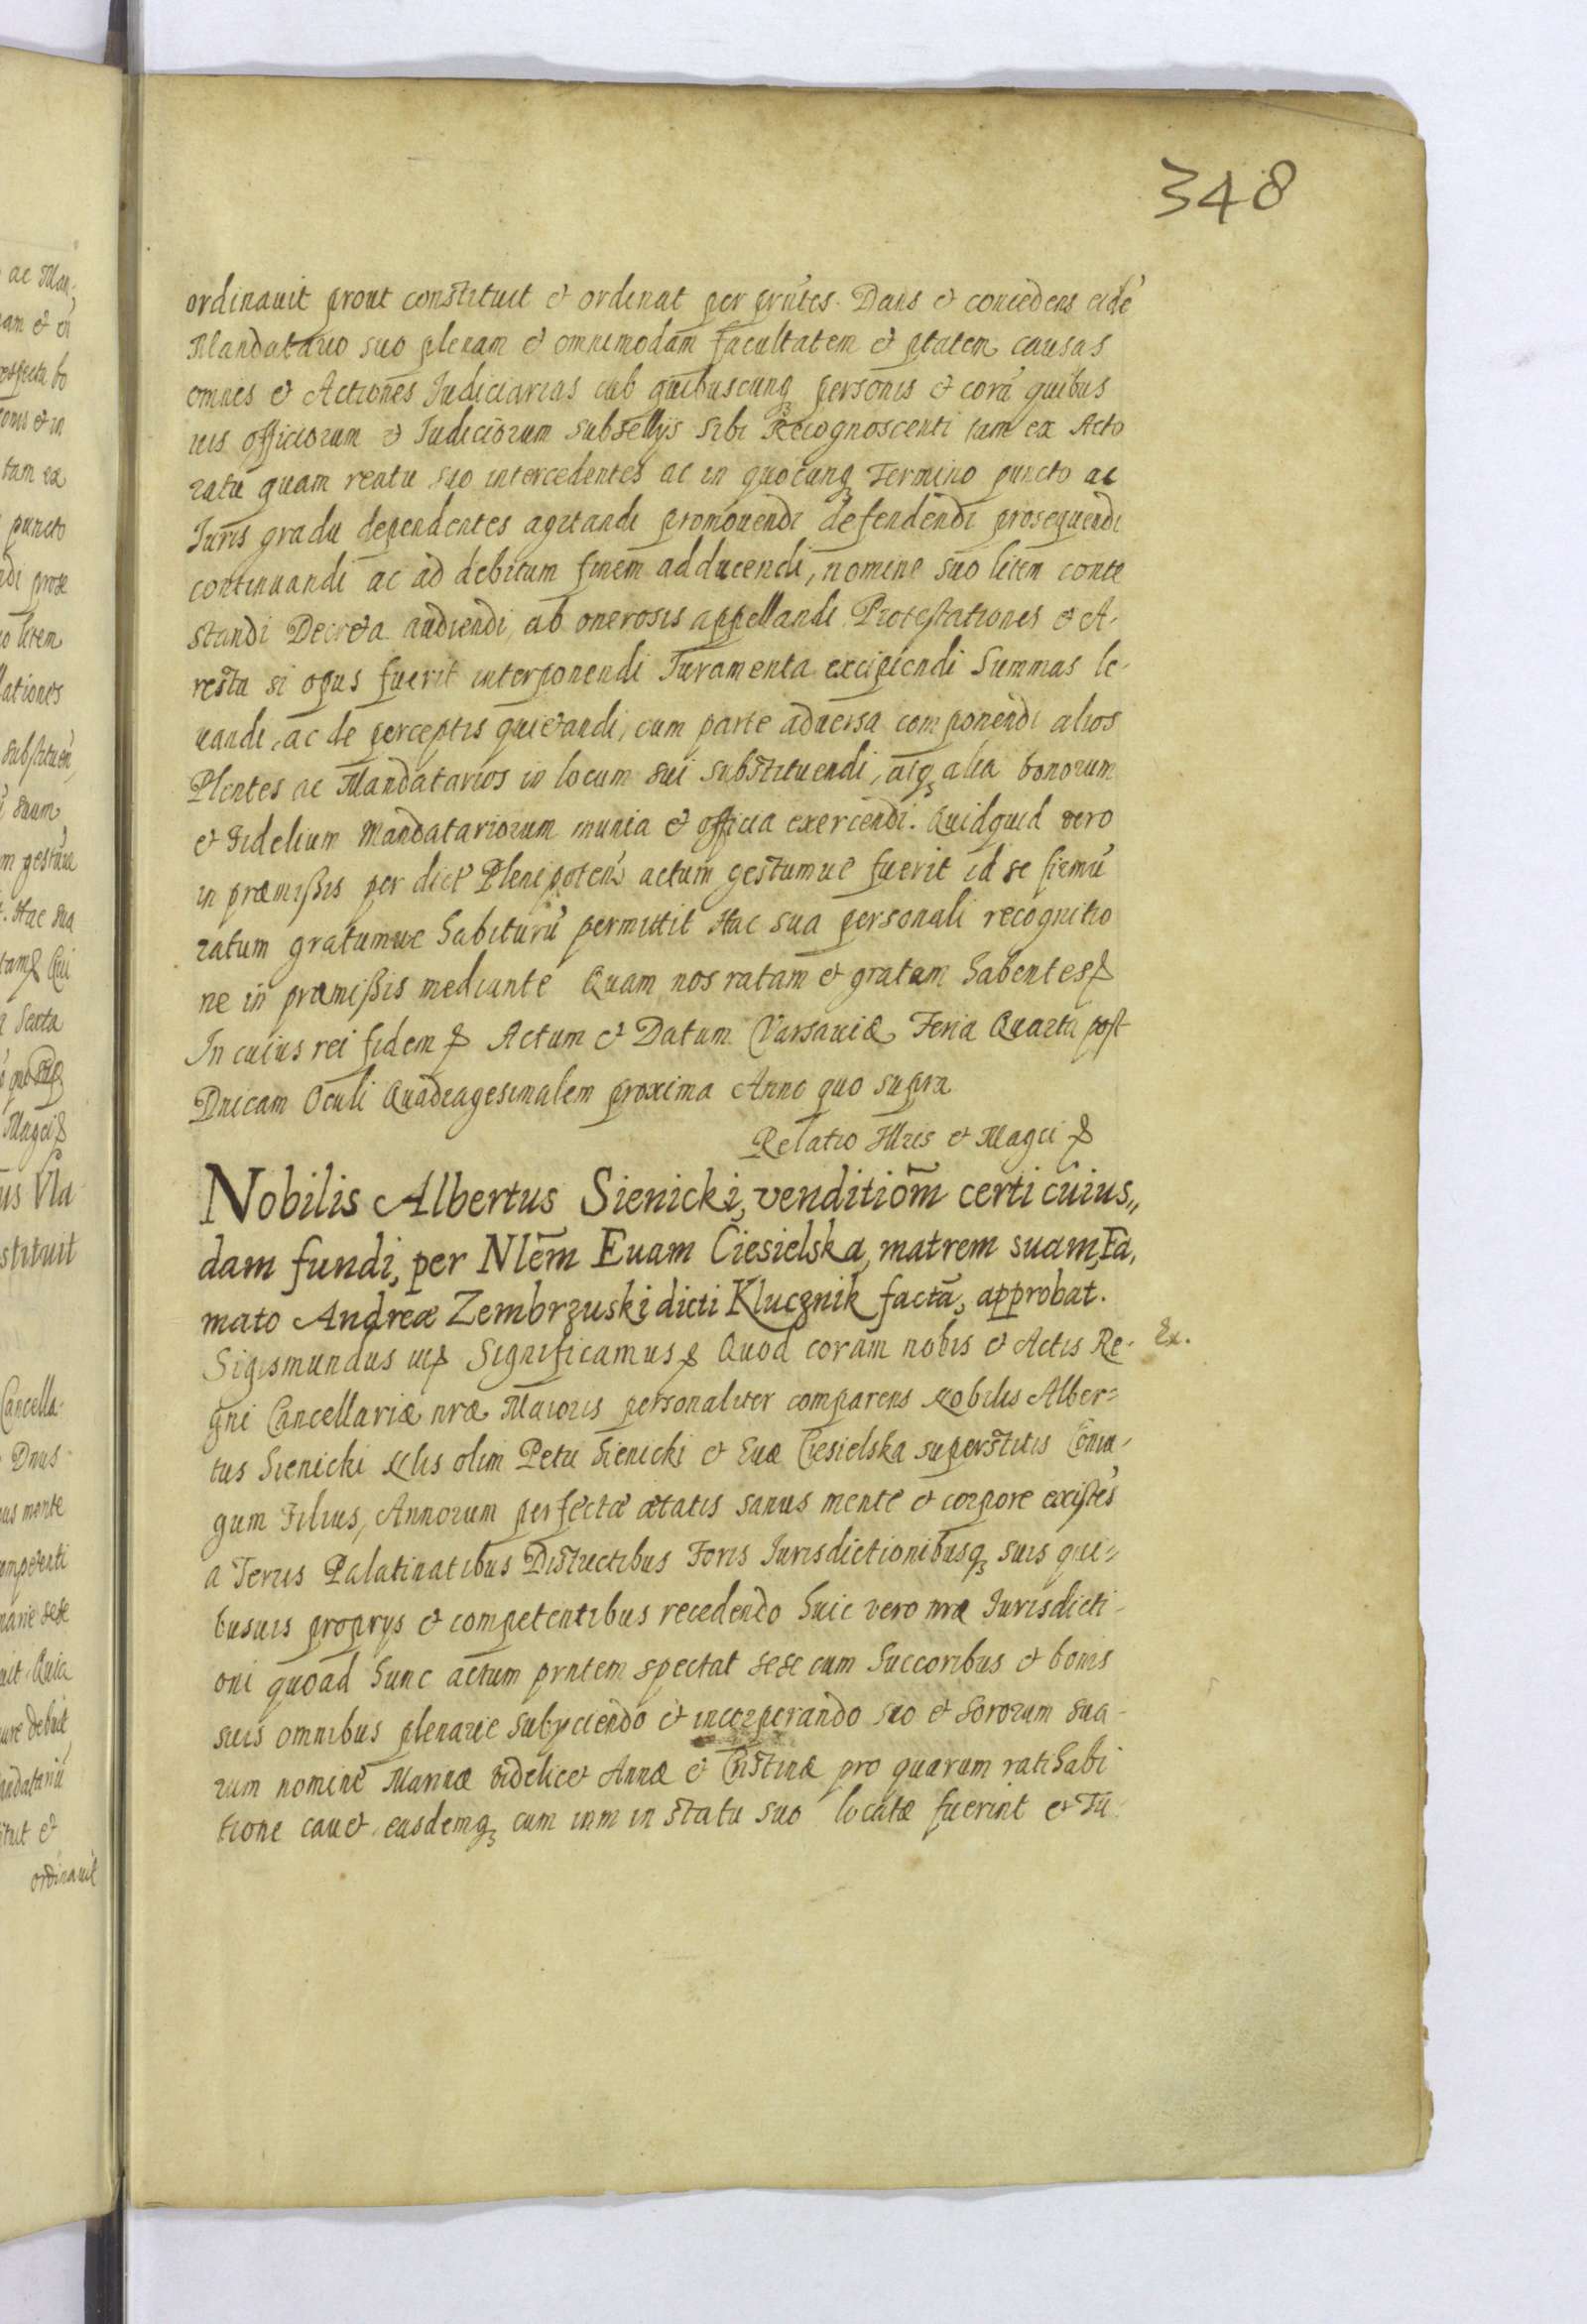 348
ordinauit prout constituit et ordinat per prntes. Dans et concedens eidē
Mandatario suo plenam et omnimodam facultatem et ptatem causas
omnes et Actiones Iudiciarias cub quibuscunq personis et corā quibus
uis officiorum et Iudiciorum subsellijs sibi Recognoscenti tam ex Acto
ratu quam reatu suo intercedentes ac in quocunq Termino puncto ac
Iuris gradu dependentes agitandi promouendi defendendi prosequendi
continuandi ac ad debitum finem adducendi, nomine suo litem conte
standi Decreta audiendi, ab onerosis appellandi Protestationes et A-
resta si opus fuerit interponendi Iuramenta excipiendi Summas le-
uandi, ac de perceptis quietandi, cum parte aduersa componendi alios
Plentes ac Mandatarios in locum sui substituendi, atq alia bonorum
et fidelium Mandatariorum munia et officia exercendi. Quidquid vero
in præmißis per dict Plenipoten actum gestumue fuerit id se firmū
ratum gratumue habiturū permittit Hac sua personali recognitio
ne in præmißis mediante Quam nos ratam et gratam habentes
In cuius rei fidem Actum et Datum Varsauiæ Feria Quarta post
Dnicam Oculi Quadragesimalem proxima Anno quo supra
Relatio Illris et Magci
Nobilis Albertus Sienicki, venditiōm certi cuius„
dam fundi, per Nlēm Euam Ciesielska, matrem suam, Fa,
mato Andreæ Zembrzuski dicti Klucznik factā, approbat.
Sigismundus Significamus Quod coram nobis et Actis Re- Ex.
gni Cancellariæ nræ Maioris personaliter comparens Nobilis Alber=
tus Sienicki Nlis olim Petri Sienicki et Euæ Ciesielska superstitis Coniu-
gum Filius, Annorum perfectæ ætatis sanus mente et corpore existēs
a Terris Palatinatibus Districtibus Foris Iurisdictionibusq suis qui=
busuis proprys et competentibus recedendo huic vero nræ Iurisdicti-
oni quoad hunc actum prntem spectat sese cum Succoribus et bonis
suis omnibus plenarie subyciendo et incorporando suo et sororum sua-
rum nomine Mariæ videlicet Annæ et Cristinæ pro quarum ratihabi
tione cauet, easdemq cum in statu suo locatæ fuerint et